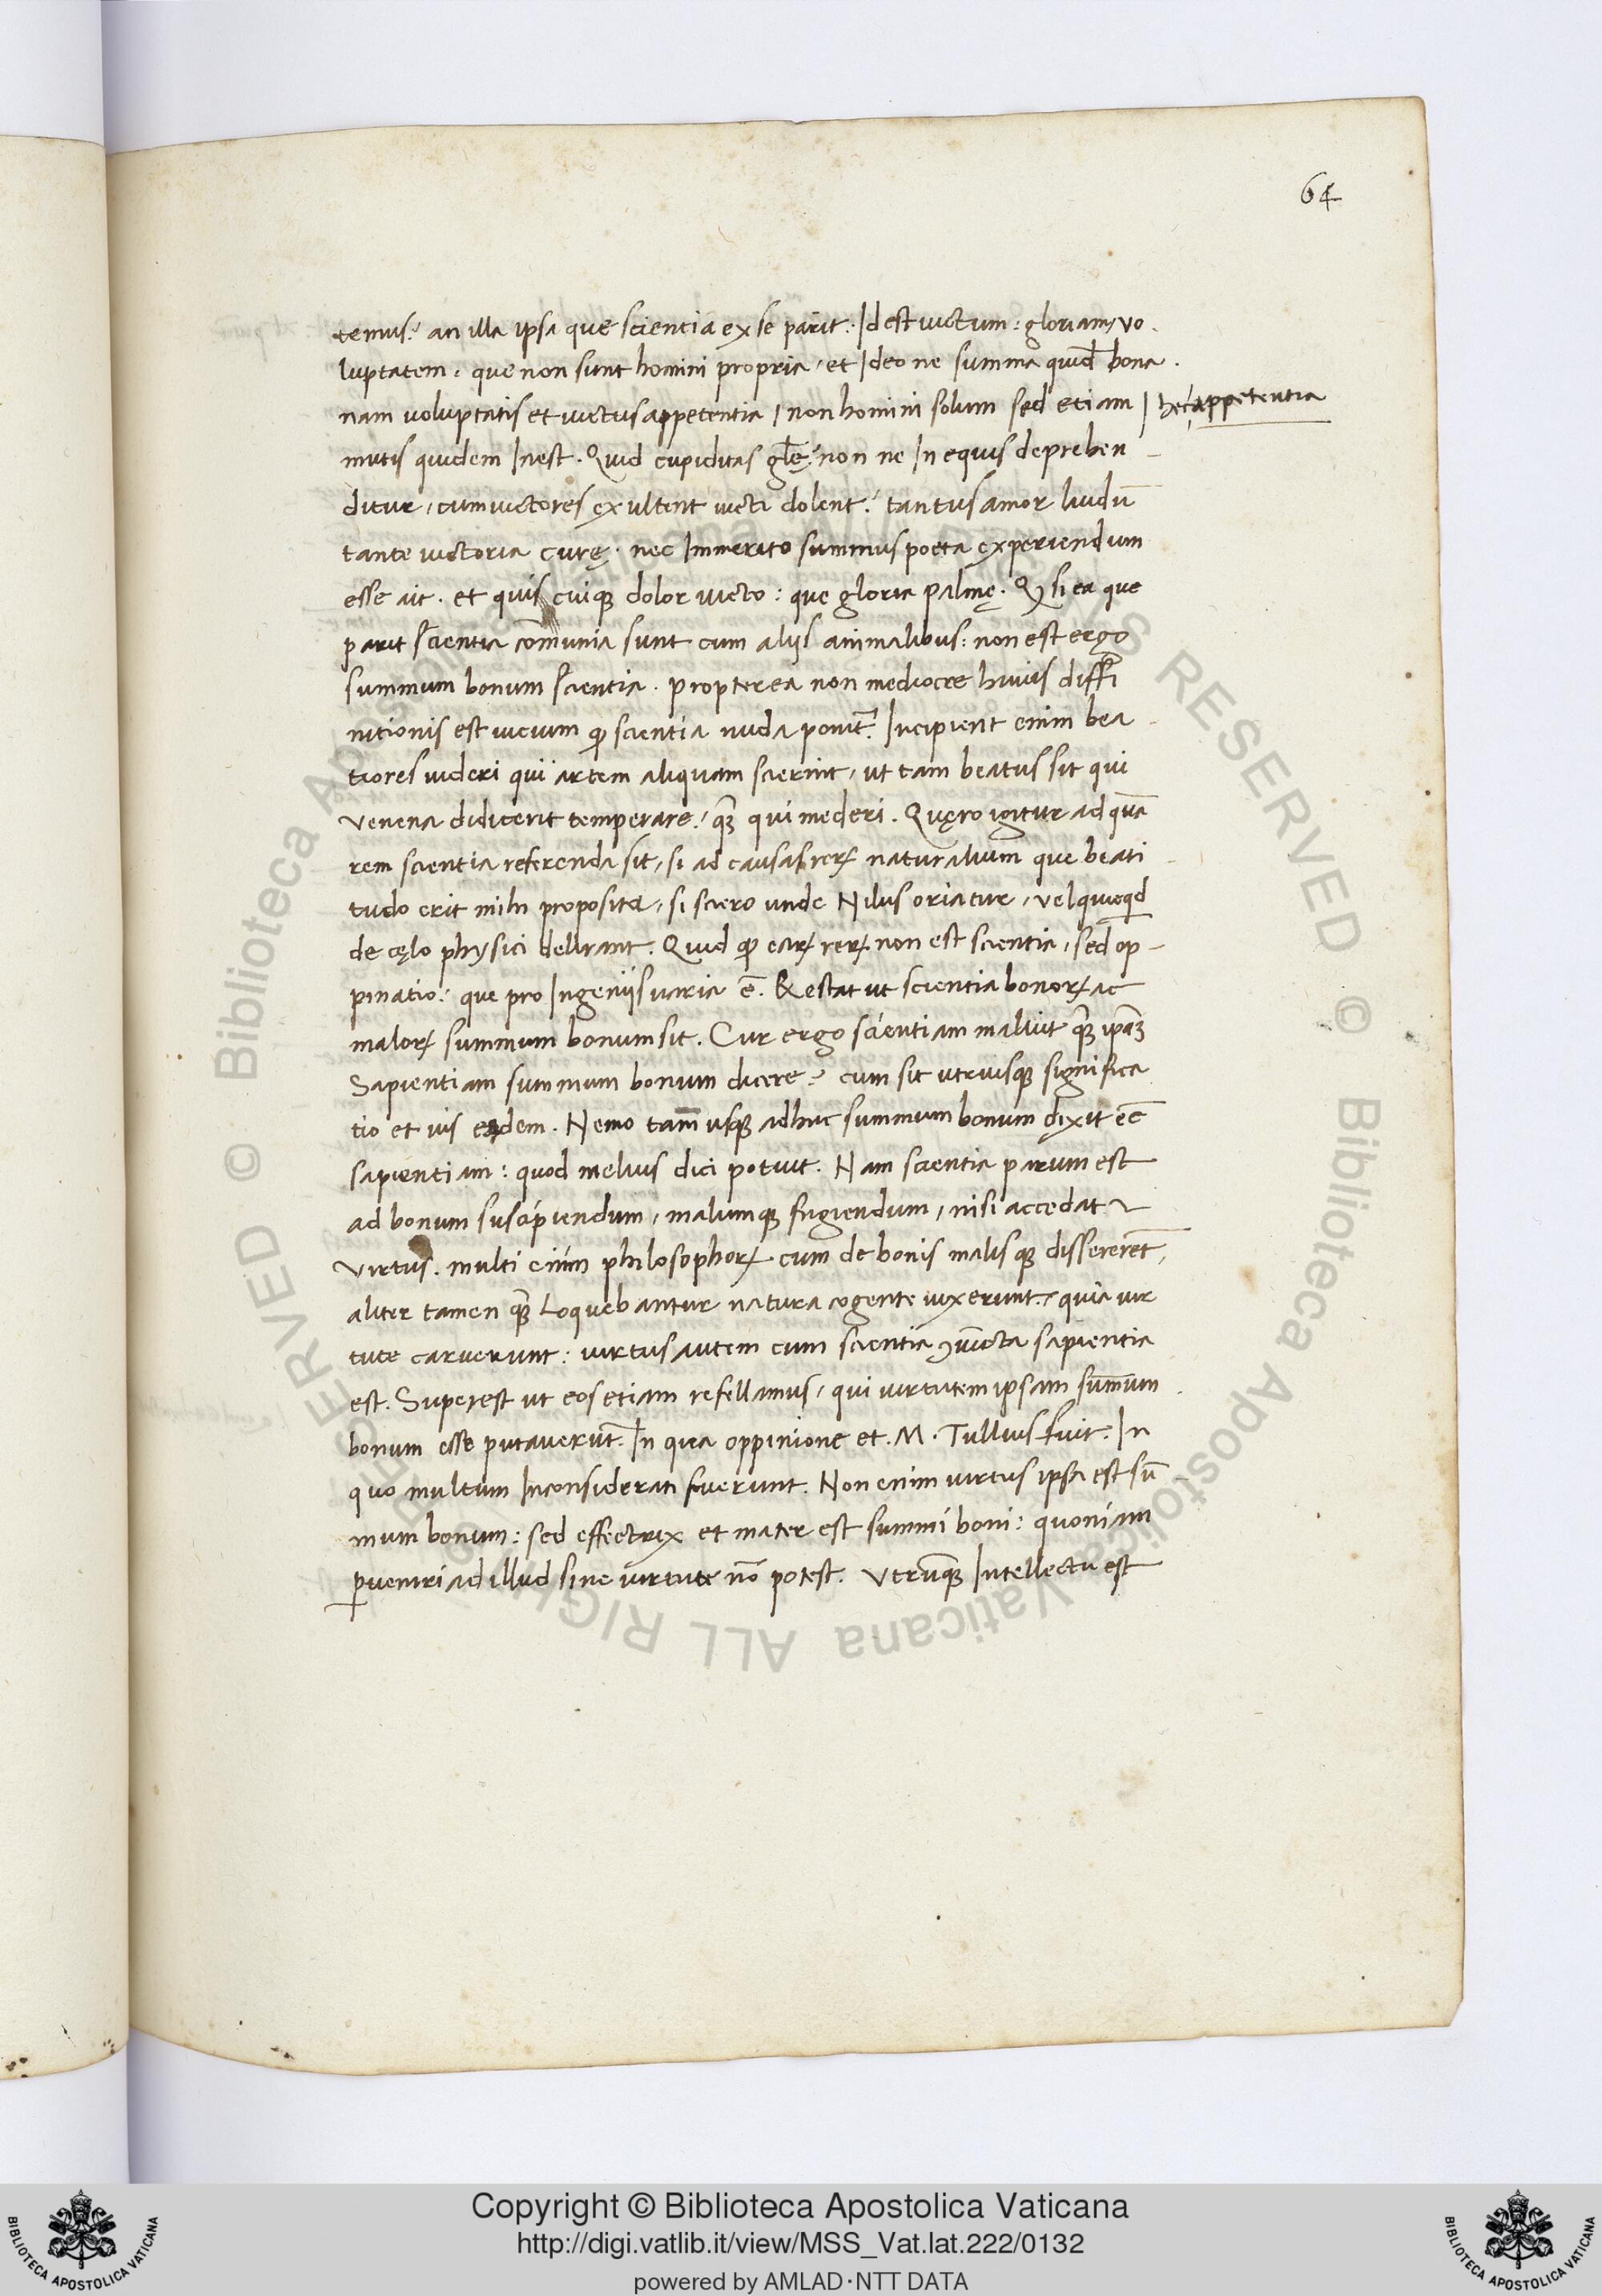 64
temus? an illa ipsa que scientia ex se parit. Id est victum: gloriam, vo
luptatem, que non sunt homini propria, et Ideo ne summa quid̄ bona.
nam voluptatis et victus appetentia, non homini solum sed etiam | hec appetentia
mutis quidem Inest. Quid cupiditas gl̄ę? non ne In equis deprehen
ditur, cum victores exultent victi dolent? tantus amor laudū
tante victoria curę. nec Immerito summus poeta experiendum
esse ait. et quis cuiqꝫ dolor victo: que gloria palmę. Qꝫ si ea que
parit scientia com̄unia sunt cum alijs animalibus: non est ergo
summum bonum scientia. propterea non mediocre huius diffi
nitionis est vicium ꝙ scientia nuda ponit̄. Incipient enim bea
tiores videri qui artem aliquam scierint, ut tam beatus sit qui
venena didicerit temperare, qꝫ qui mederi. Quęro igitur ad quā
rem scientia referenda sit, si ad causas reꝝ naturalium que beati
tudo erit mihi proposita, si sciero unde Nilus oriatur, vel quicqd
de cęlo physici delirant. Quid ꝙ eaꝝ reꝝ non est scientia, sed op
pinatio: que pro Ingeniis varia ē. Restat ut scientia bonoꝝ ac
maloꝝ summum bonum sit. Cur ergo scientiam maluit qꝫ ip̄aꝫ
Sapientiam summum bonum dicere? cum sit utriusqꝫ significa
tio et vis eadem. Nemo tam̄ usqꝫ adhuc summum bonum dixit eē
sapientiam: quod melius dici potuit. Nam scientia parum est
ad bonum suscipiendum, malumqꝫ fugiendum, nisi accedat
virtus. multi enim philosophoꝝ cum de bonis malisqꝫ dissererēt,
aliter tamen qꝫ loquebantur natura cogente vixerunt, quia vir
tute caruerunt: virtus autem cum scientia ꝯiūcta sapientia
est. Superest ut eos etiam refellamus, qui virtutem ipsam sum̄um
bonum esse putaverūt. In qua oppinione et. M. Tullius fuit. In
quo multum Inconsiderati fuerunt. Non enim virtus ipsa est sū
mum bonum: sed effectrix et mater est summi boni: quoniam
ꝑveniri ad illud sine virtute nō potest. Utrūqꝫ Intellectu est
Copyright © Biblioteca Apostolica Vaticana
http://digi.vatlib.it/view/MSS_Vat.lat.222/0132
powered by AMLAD·NTT DATA
BIBLIOTECA APOSTOLICA VATICANA
BIBLIOTECA APOSTOLICA VATICANA
© Biblioteca Apostolica Vaticana ALL RIGHTS RESERVED © Biblioteca Apostolica Vaticana ALL RIGHTS RESERVED